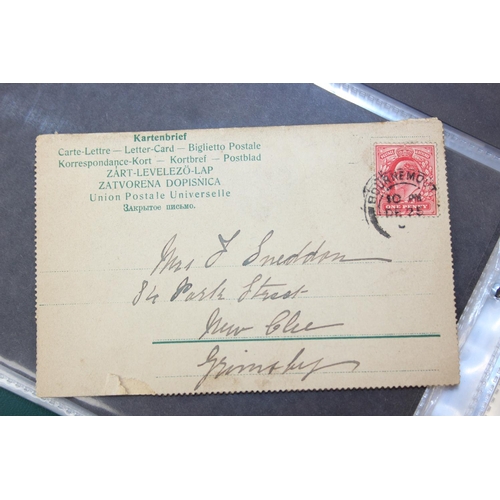 Kartenbrief
Carte-Lettre — Letter-Card — Biglietto Postale
Korrespondance-Kort — Kortbref — Postblad
ZÁRT-LEVELEZŐ-LAP
ZATVORENA DOPISNICA
Union Postale Universelle
Закрытое письмо.
10 PM
DE 25
ONE PENNY
Mrs J Sneddon
84 Park Street
New Clee
Grimsby